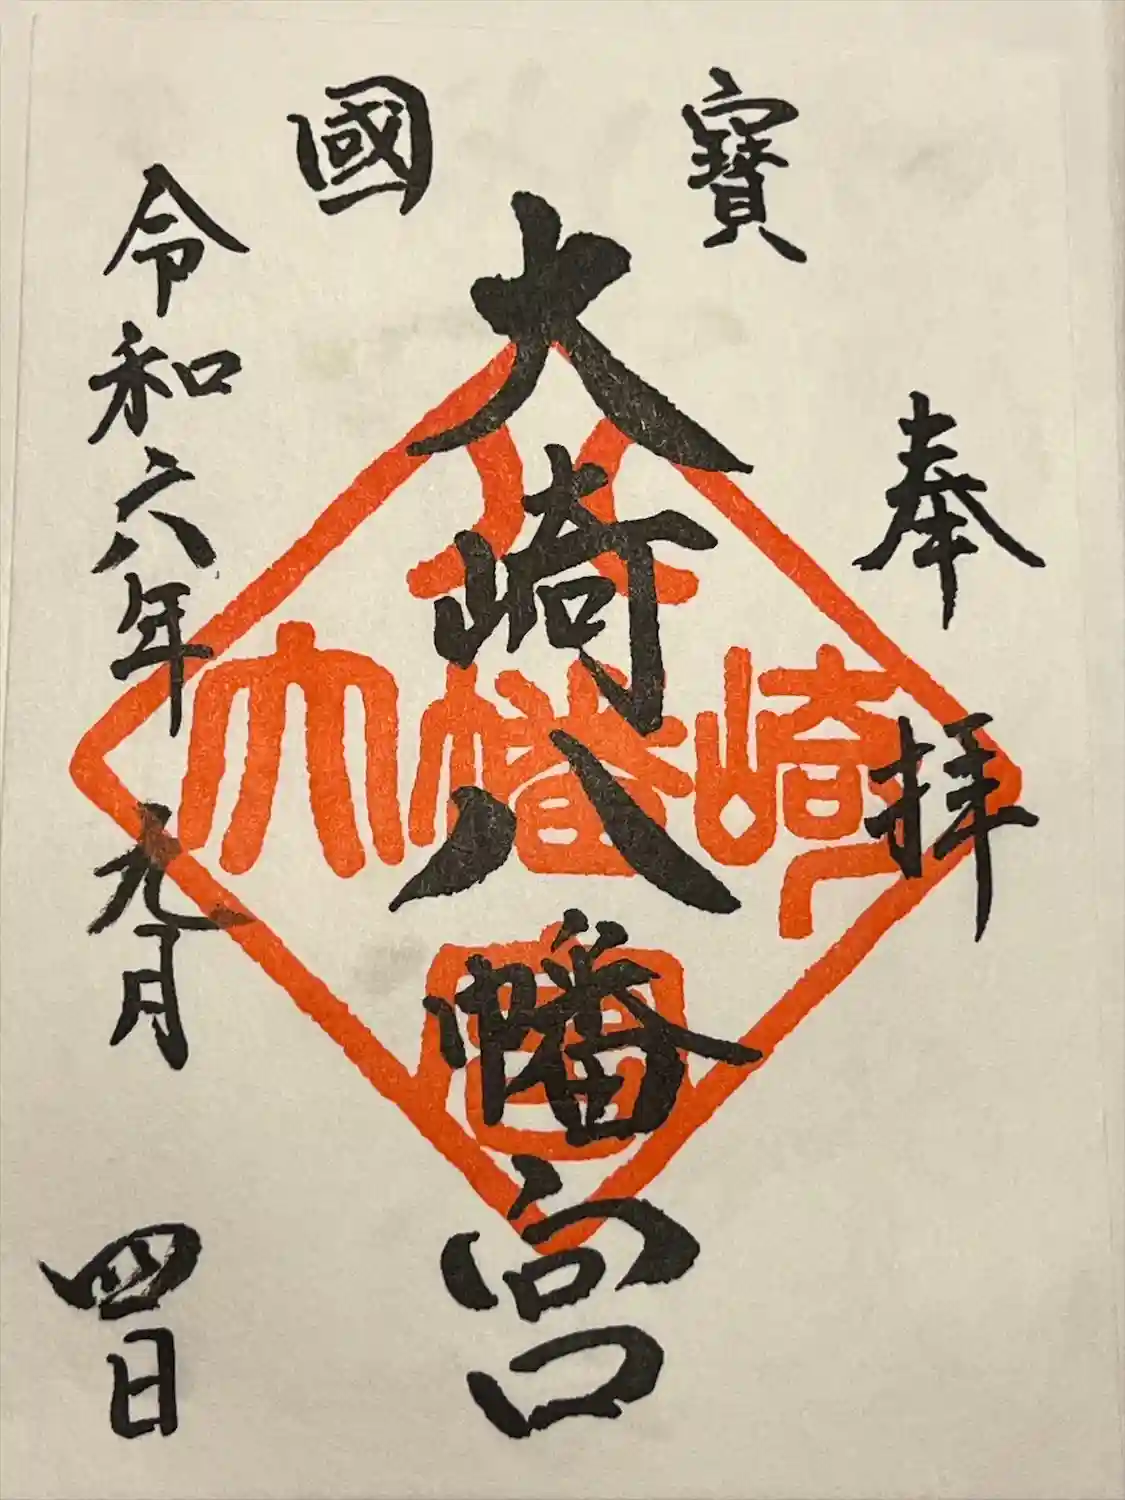 奉拝
寶國
大崎八幡宮
八
大幡崎
宮
令和六年九月四日